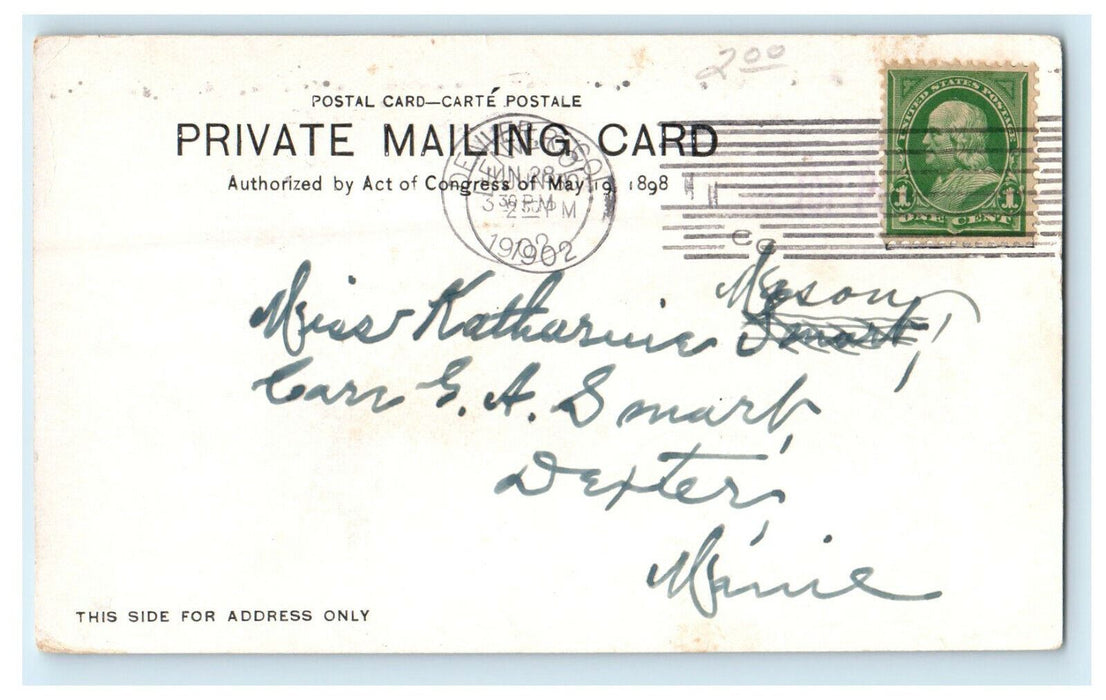 2.00
POSTAL CARD—CARTÉ POSTALE
PRIVATE MAILING CARD
Authorized by Act of Congress of May 19, 1898
DENVER COLO.
JUN 28
3 30 PM
1902
UNITED STATES POSTAGE
1 1
ONE CENT
Mason
Miss Katharine Smart,
Care G. A. Smart,
Dexter,
Maine
THIS SIDE FOR ADDRESS ONLY